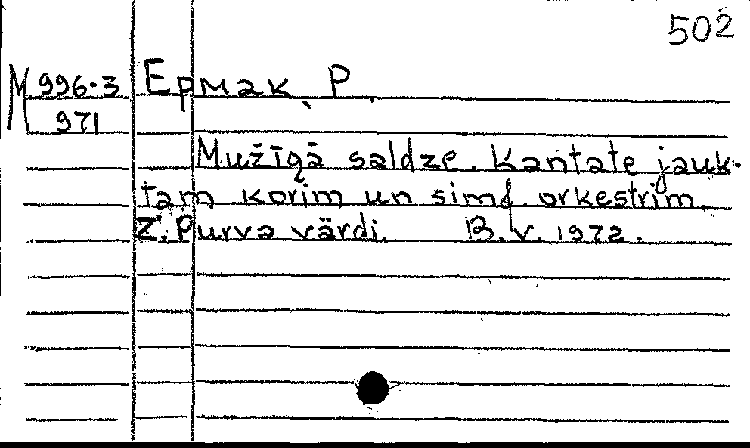 502
M 996.3 Ермак, Р.
971
Mužīgā saldze. Kantate jauk-
tam korim un simf. orkestrim.
Z. Purva vārdi. B.v. 1972.